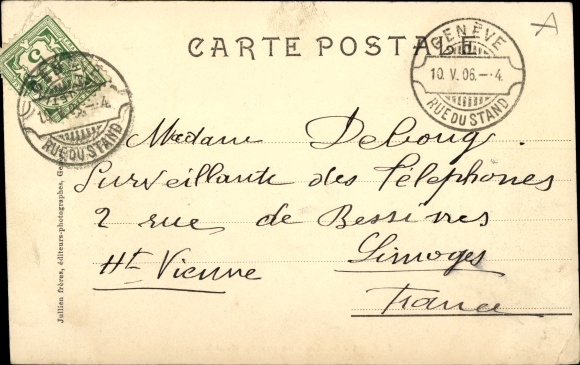 CARTE POSTALE
GENÈVE
10. V. 06. - 4.
RUE DU STAND
5
RUE DU STAND
Madame Deboug
Surveillante des Téléphones
2 rue de Bessières
Limoges
Ht Vienne
France
Jullien frères, éditeurs-photographes,
A